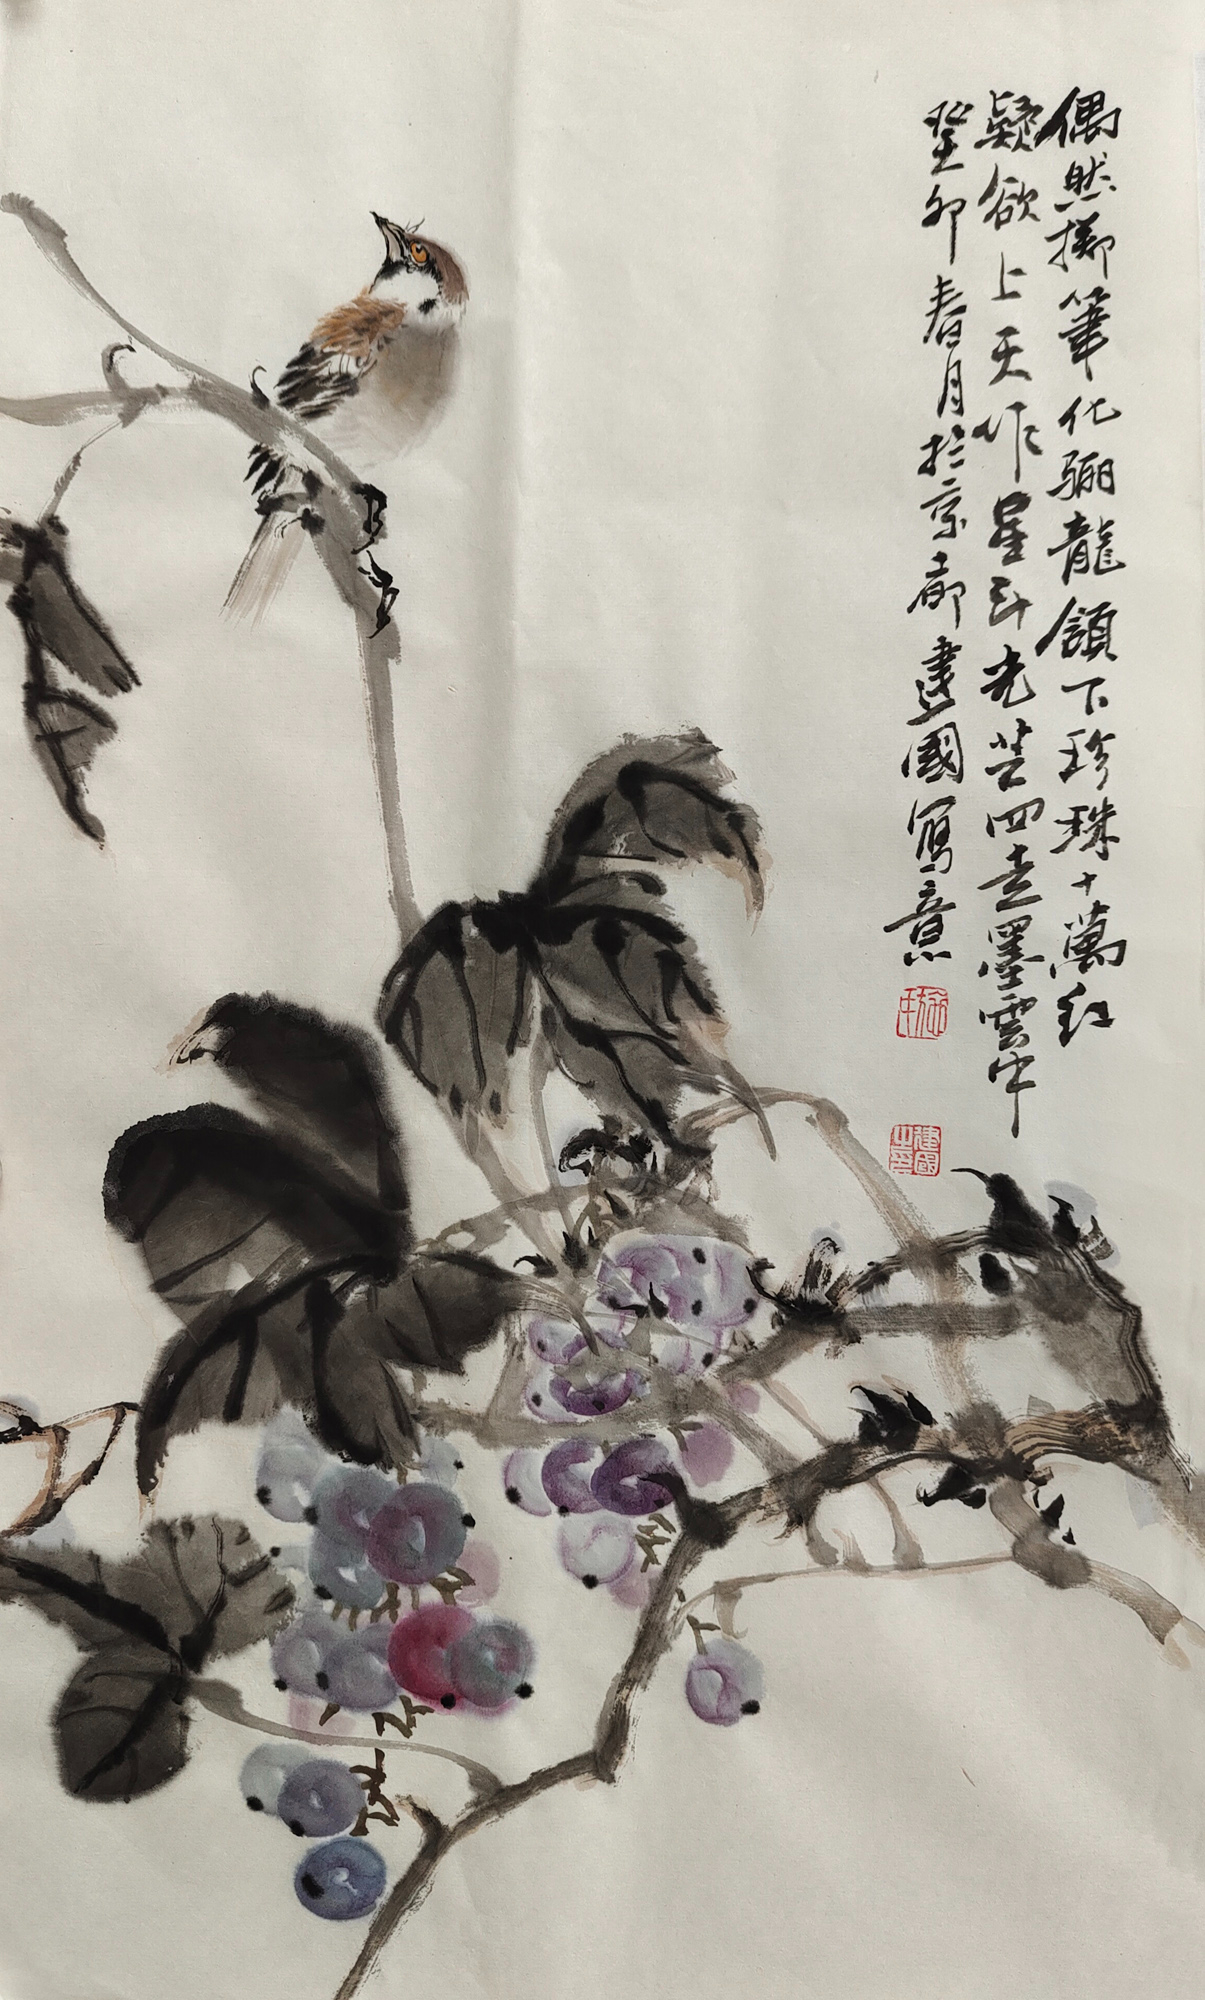 偶然擲筆化骊龍頷下珍珠十萬紅
疑欲上天作星斗光芒四走墨雲中
癸卯春月於京都建國寫意
建國之印